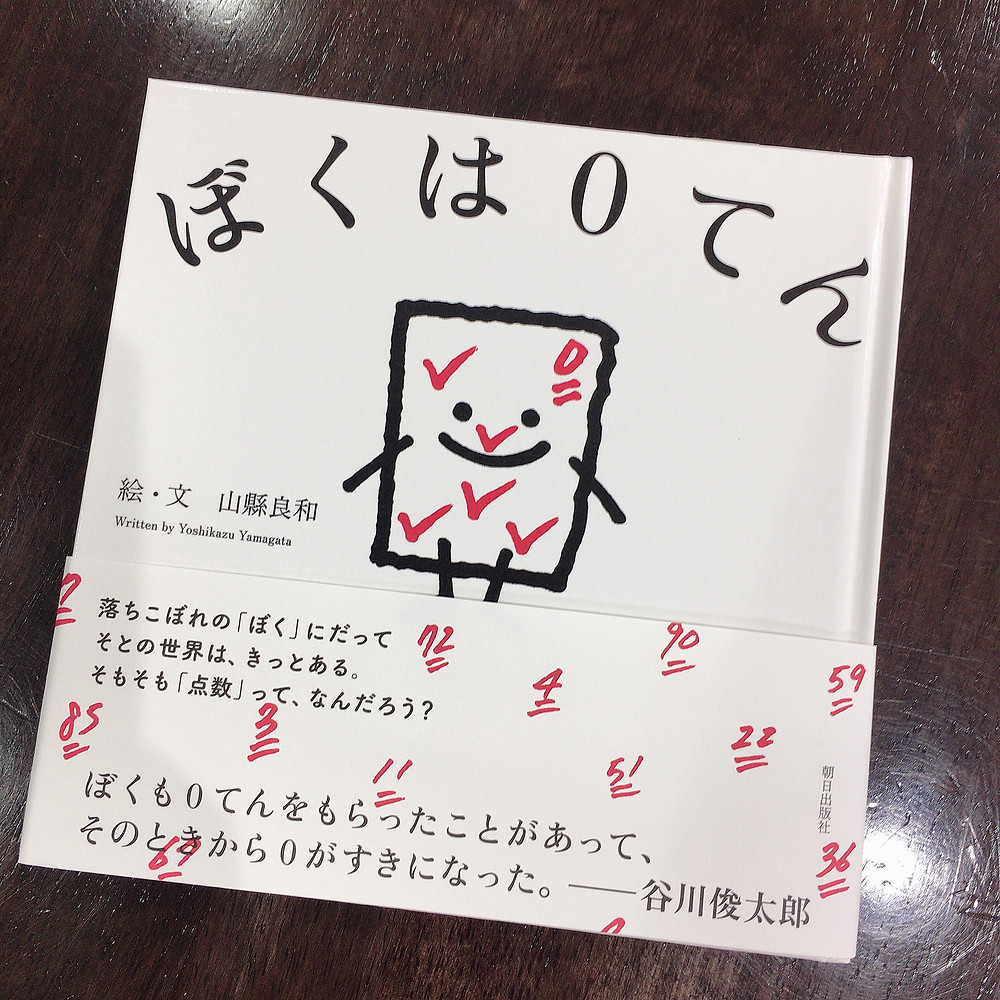 ぼくは0てん
0
絵・文 山縣良和
Written by Yoshikazu Yamagata
落ちこぼれの「ぼく」にだって
そとの世界は、きっとある。
そもそも「点数」って、なんだろう?
72
90
4
59
85
3
22
11
51
ぼくも0てんをもらったことがあって、
そのときから0がすきになった。——谷川俊太郎
69
36
朝日出版社